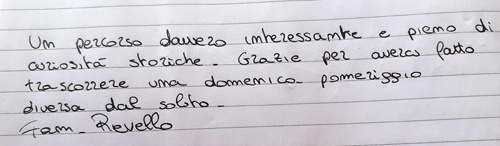 Um percorso davvero interessante e pieno di
curiosità storiche. Grazie per averci fatto
trascorrere una domenica pomeriggio
diversa dal solito.
Fam. Revello